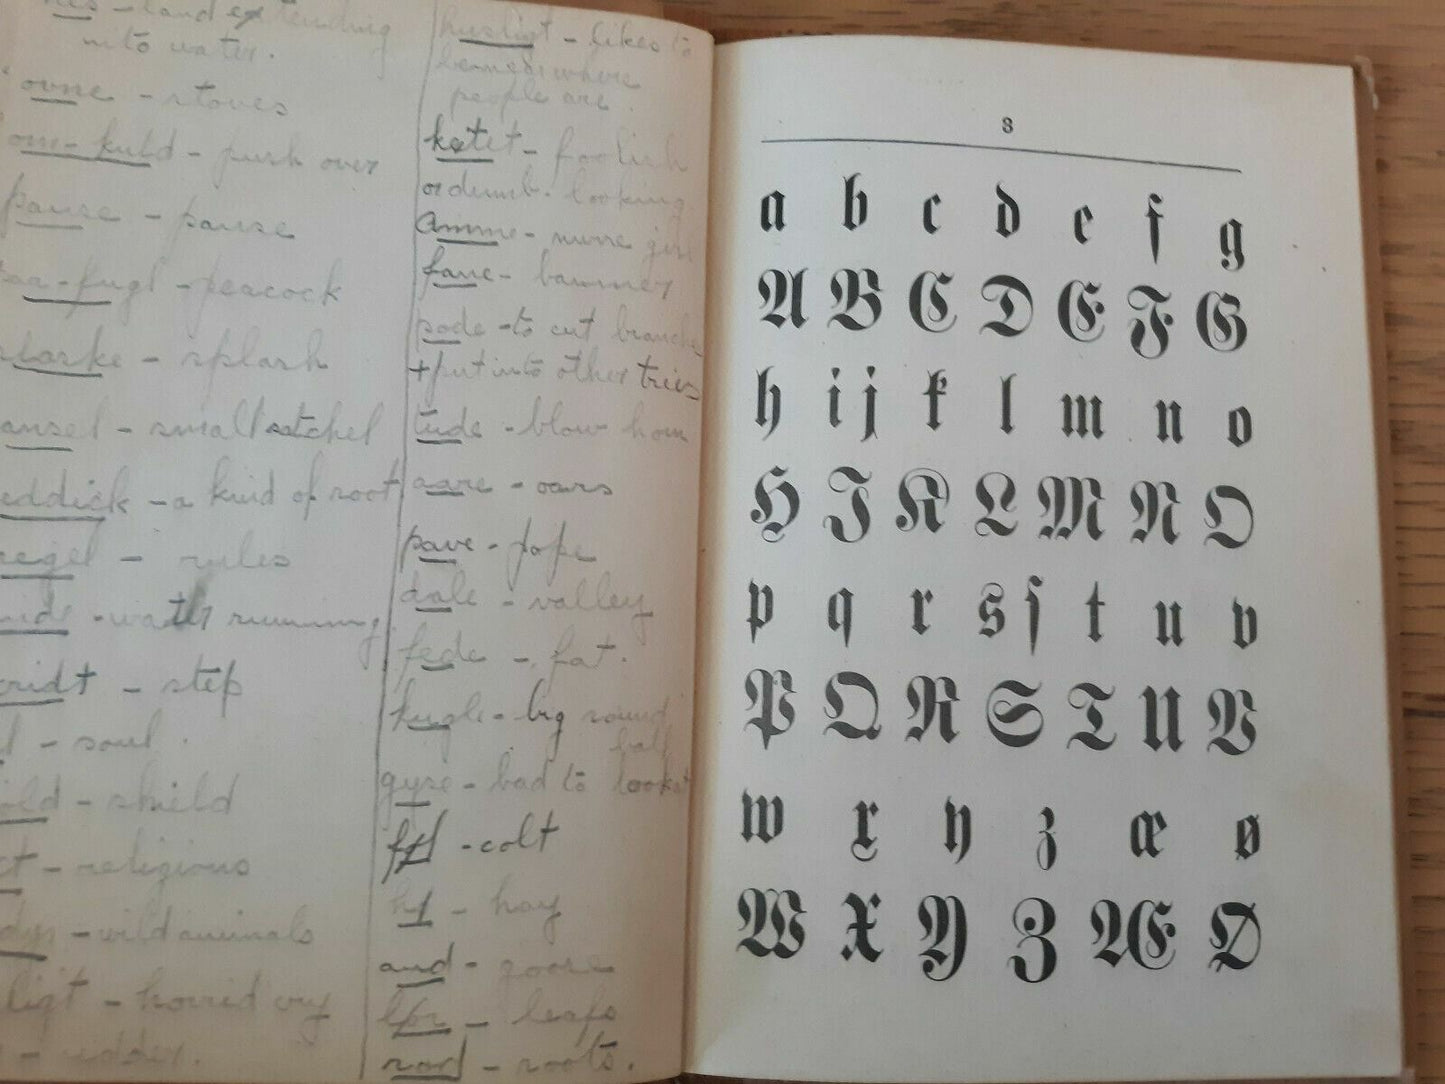 land extending
into water.
ovne - stoves
om-kuld - push over
pause - pause
paa-fugl - peacock
plaske - splash
ransel - small satchel
reddick - a kind of root
regel - rules
- water running
skridt - step
- soul.
- shield
- religious
- wild animals
- horrid cry
- udder.
husligt - likes to
be made where
people are.
ketet - foolish
or dumb-looking
Amme - nurse girl
fane - banner
pode - to cut branche
+ put into other tries
tude - blow horn
aare - oars
pave - pope
dale - valley
fede - fat.
kugle - big round
ball
gyse - bad to look at
føl - colt
hø - hay
and - goose
løv - leafs
rod - roots.
3
a b c d e f g
A B C D E F G
h i j k l m n o
H I K L M N O
p q r s ſ t u v
P Q R S T U V
w x y z æ ø
W X Y Z Æ Ø